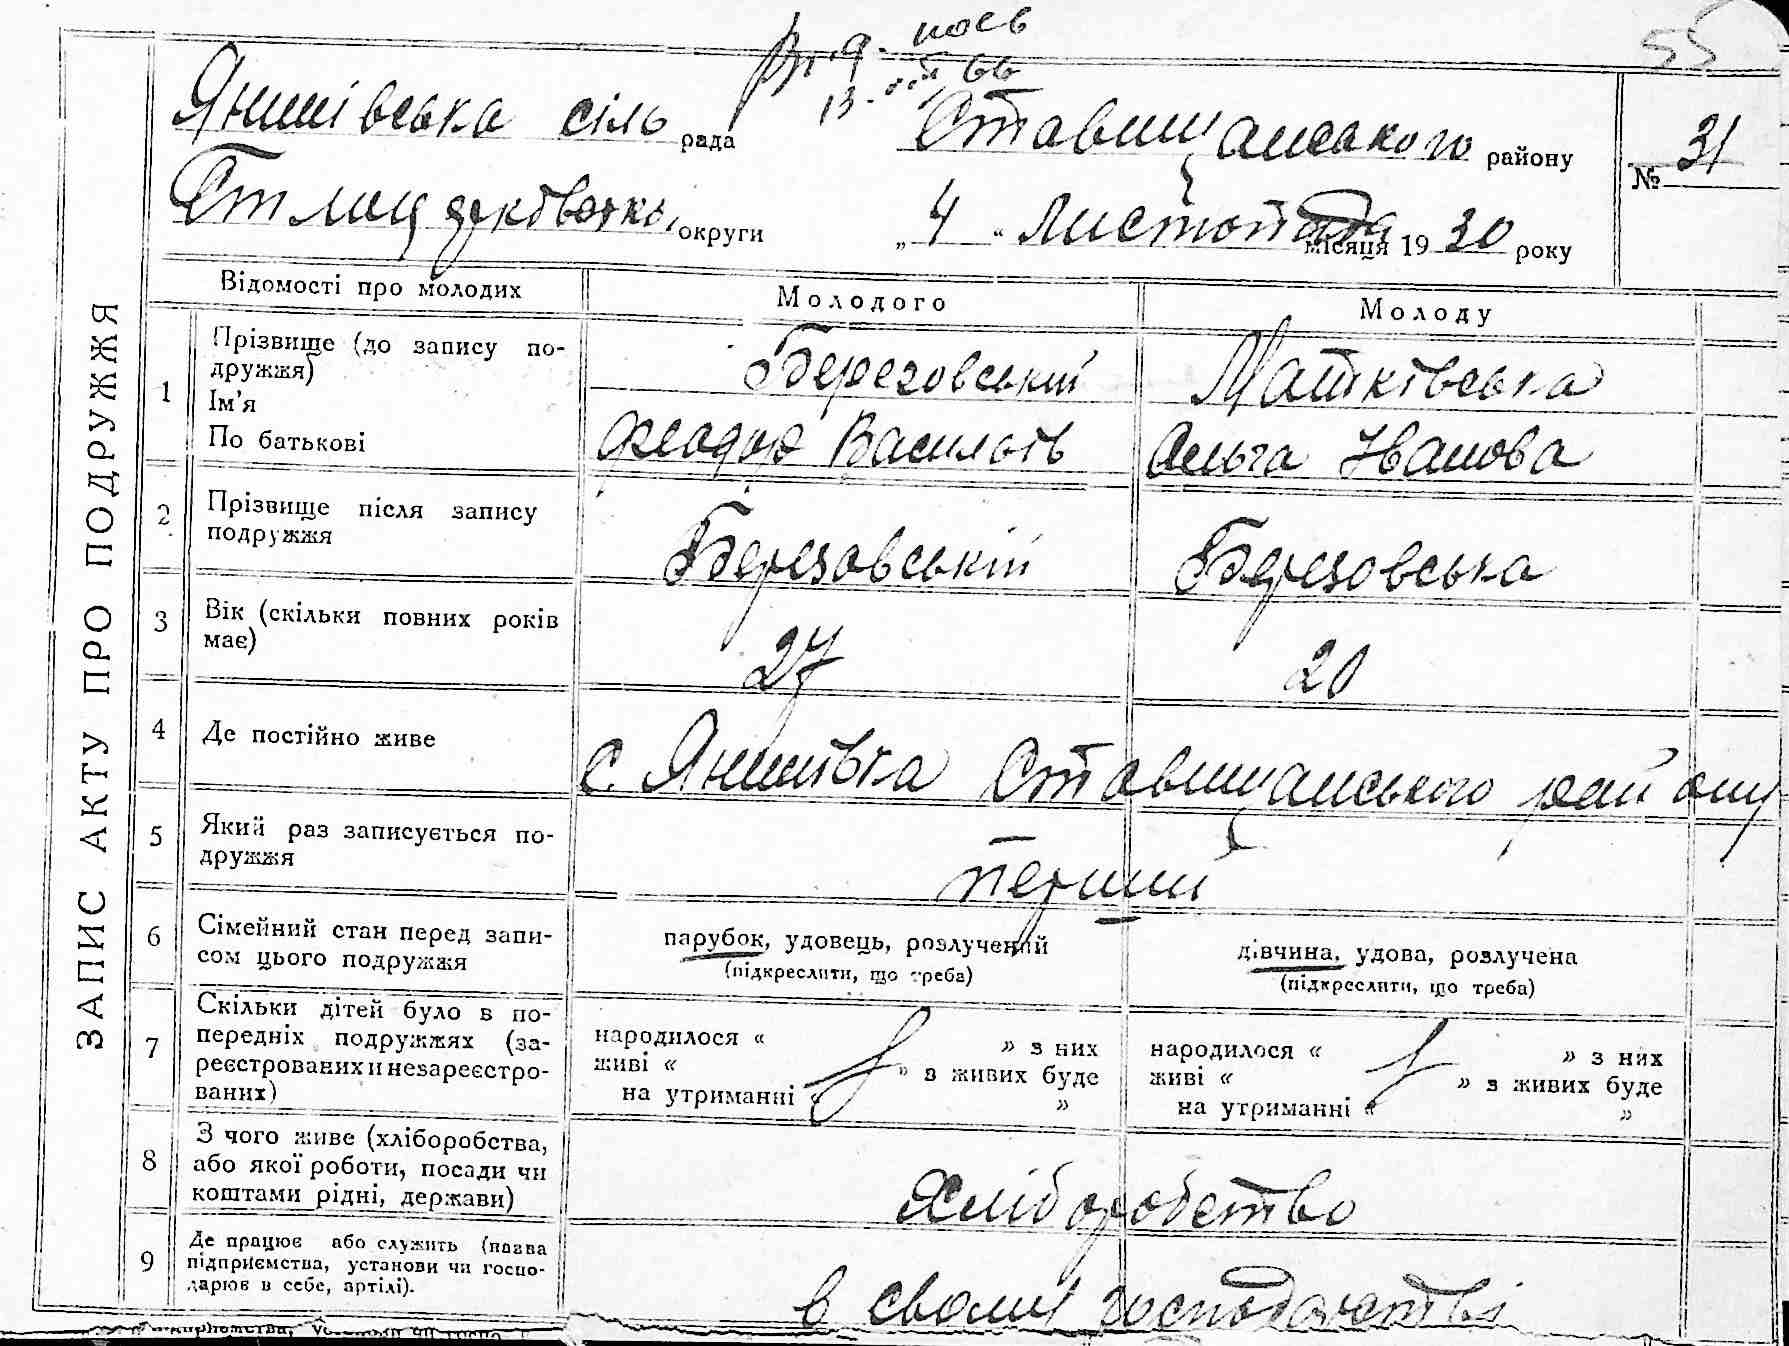 55
Янишівська сіль рада Ставищанського району № 31
округи „ 4 “ Листопада місяця 19 30 року
ЗАПИС АКТУ ПРО ПОДРУЖЖЯ
Відомості про молодих Молодого Молоду
1 Прізвище (до запису по-
дружжя) Березовський Матківська
Ім'я
По батькові Феодор Васильів Ольга Иванова
2 Прізвище після запису
подружжя Березовській Березовська
3 Вік (скільки повних років
має) 27 20
4 Де постійно живе с. Янишівка Ставищанського району
5 Який раз записується по-
дружжя перший
6 Сімейний стан перед запи-
сом цього подружжя
парубок, удовець, розлучений дівчина, удова, розлучена
(підкреслити, що треба) (підкреслити, що треба)
7 Скільки дітей було в по-
передніх подружжях (за-
реєстрованих и незареєстро-
ваних)
народилося “ ” з них народилося “ ” з них
живі “ ” з живих буде живі “ ” з живих буде
на утриманні “ ” на утриманні “ ”
8 З чого живе (хліборобства,
або якої роботи, посади чи
коштами рідні, держави) Хліборобство
9 Де працює або служить (назва
підприємства, установи чи госпо-
дарює в себе, артілі). в своми господарстві